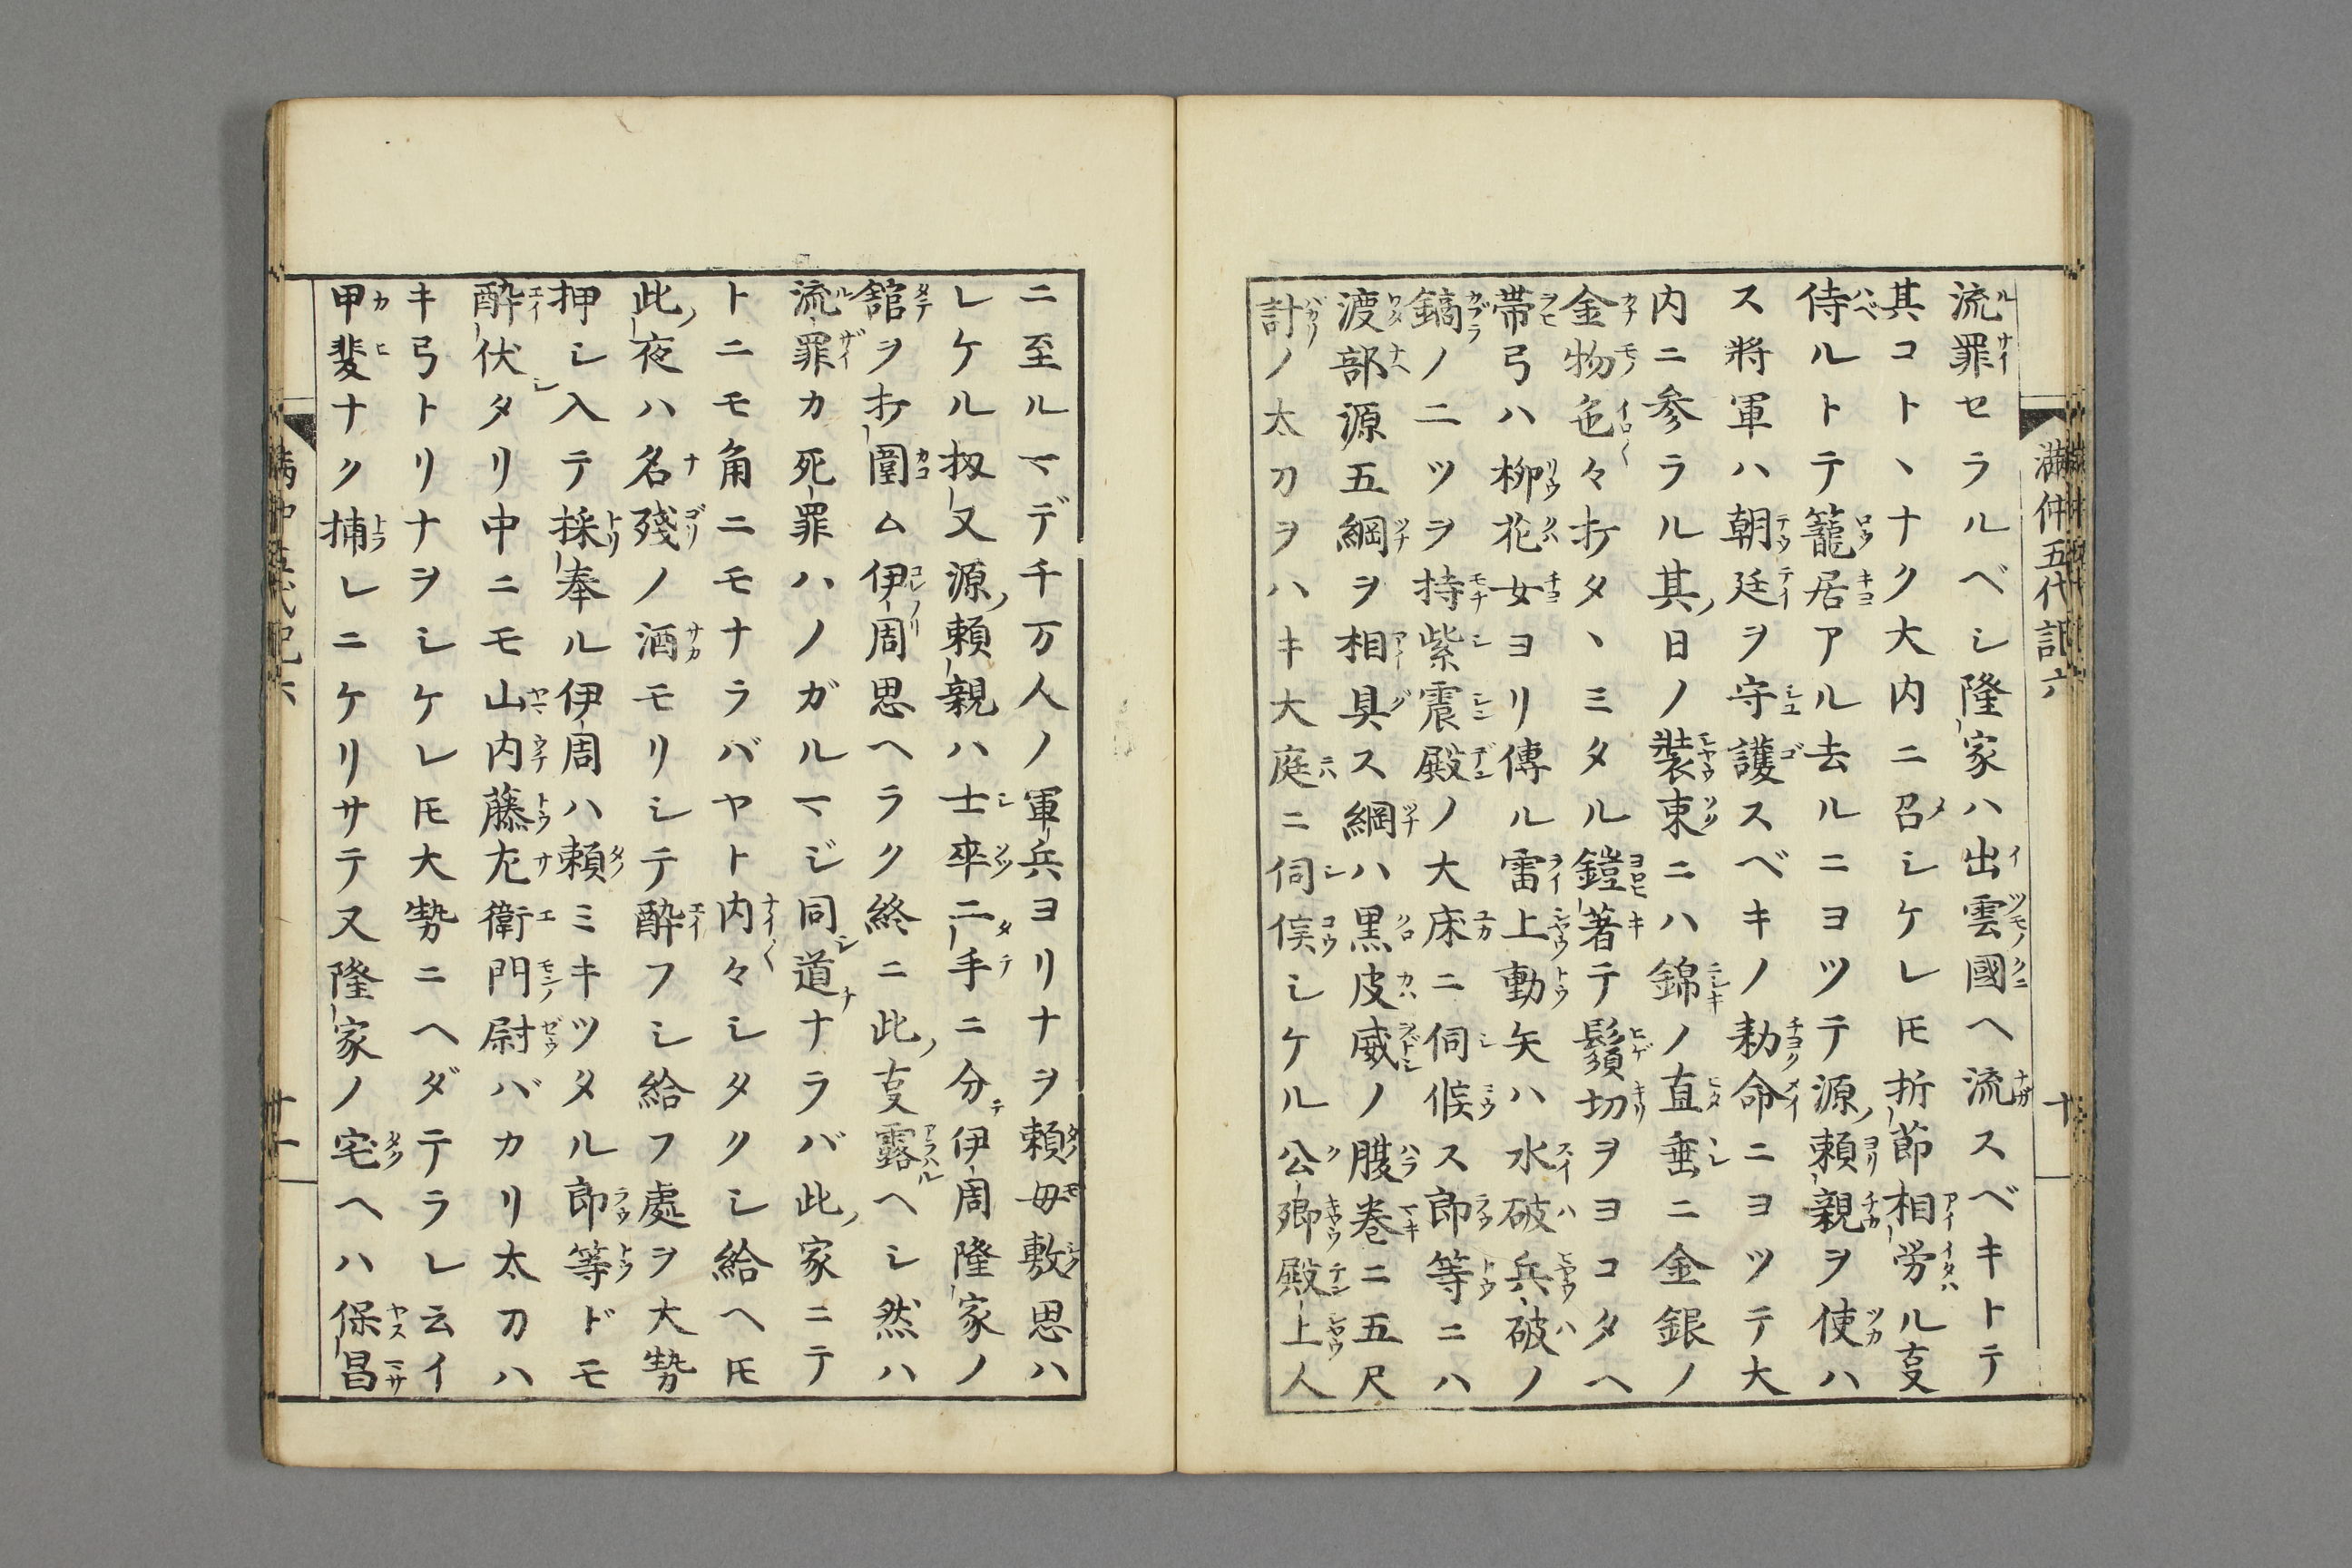 満仲五代記六
十
流罪セラルベシ隆家ハ出雲國ヘ流スベキトテ
其コトヽナク大内ニ召シケレ𪜈折節相労ル㕝
侍ルトテ籠居アル去ルニヨツテ源頼親ヲ使ハ
ス將軍ハ朝廷ヲ守護スベキノ勅命ニヨツテ大
内ニ参ラル其日ノ装束ニハ錦ノ直垂ニ金銀ノ
金物色々打タヽミタル鎧著テ鬚切ヲヨコタヘ
帯弓ハ柳花女ヨリ傳ル雷上動矢ハ水破兵破ノ
鏑ノ二ツヲ持紫震殿ノ大床ニ伺候ス郎等ニハ
渡部源五綱ヲ相具ス綱ハ黒皮威ノ腹巻ニ五尺
計ノ太刀ヲハキ大庭ニ伺候シケル公卿殿上人
ニ至ルマデ千万人ノ軍兵ヨリナヲ頼母敷思ハ
レケル扨又源頼親ハ士卒二手ニ分伊周隆家ノ
舘ヲ打圍ム伊周思ヘラク終ニ此㕝露ヘシ然ハ
流罪カ死罪ハノガルマジ同道ナラバ此家ニテ
トニモ角ニモナラバヤト内々シタクシ給ヘ𪜈
此夜ハ名殘ノ酒モリシテ酔フシ給フ處ヲ大勢
押シ入テ採奉ル伊周ハ頼ミキツタル郎等ドモ
酔伏タリ中ニモ山内藤左衛門尉バカリ太刀ハ
キ弓トリナヲシケレ𪜈大勢ニヘダテラレ云イ
甲斐ナク捕レニケリサテ又隆家ノ宅ヘハ保昌
満仲五代記六
十一